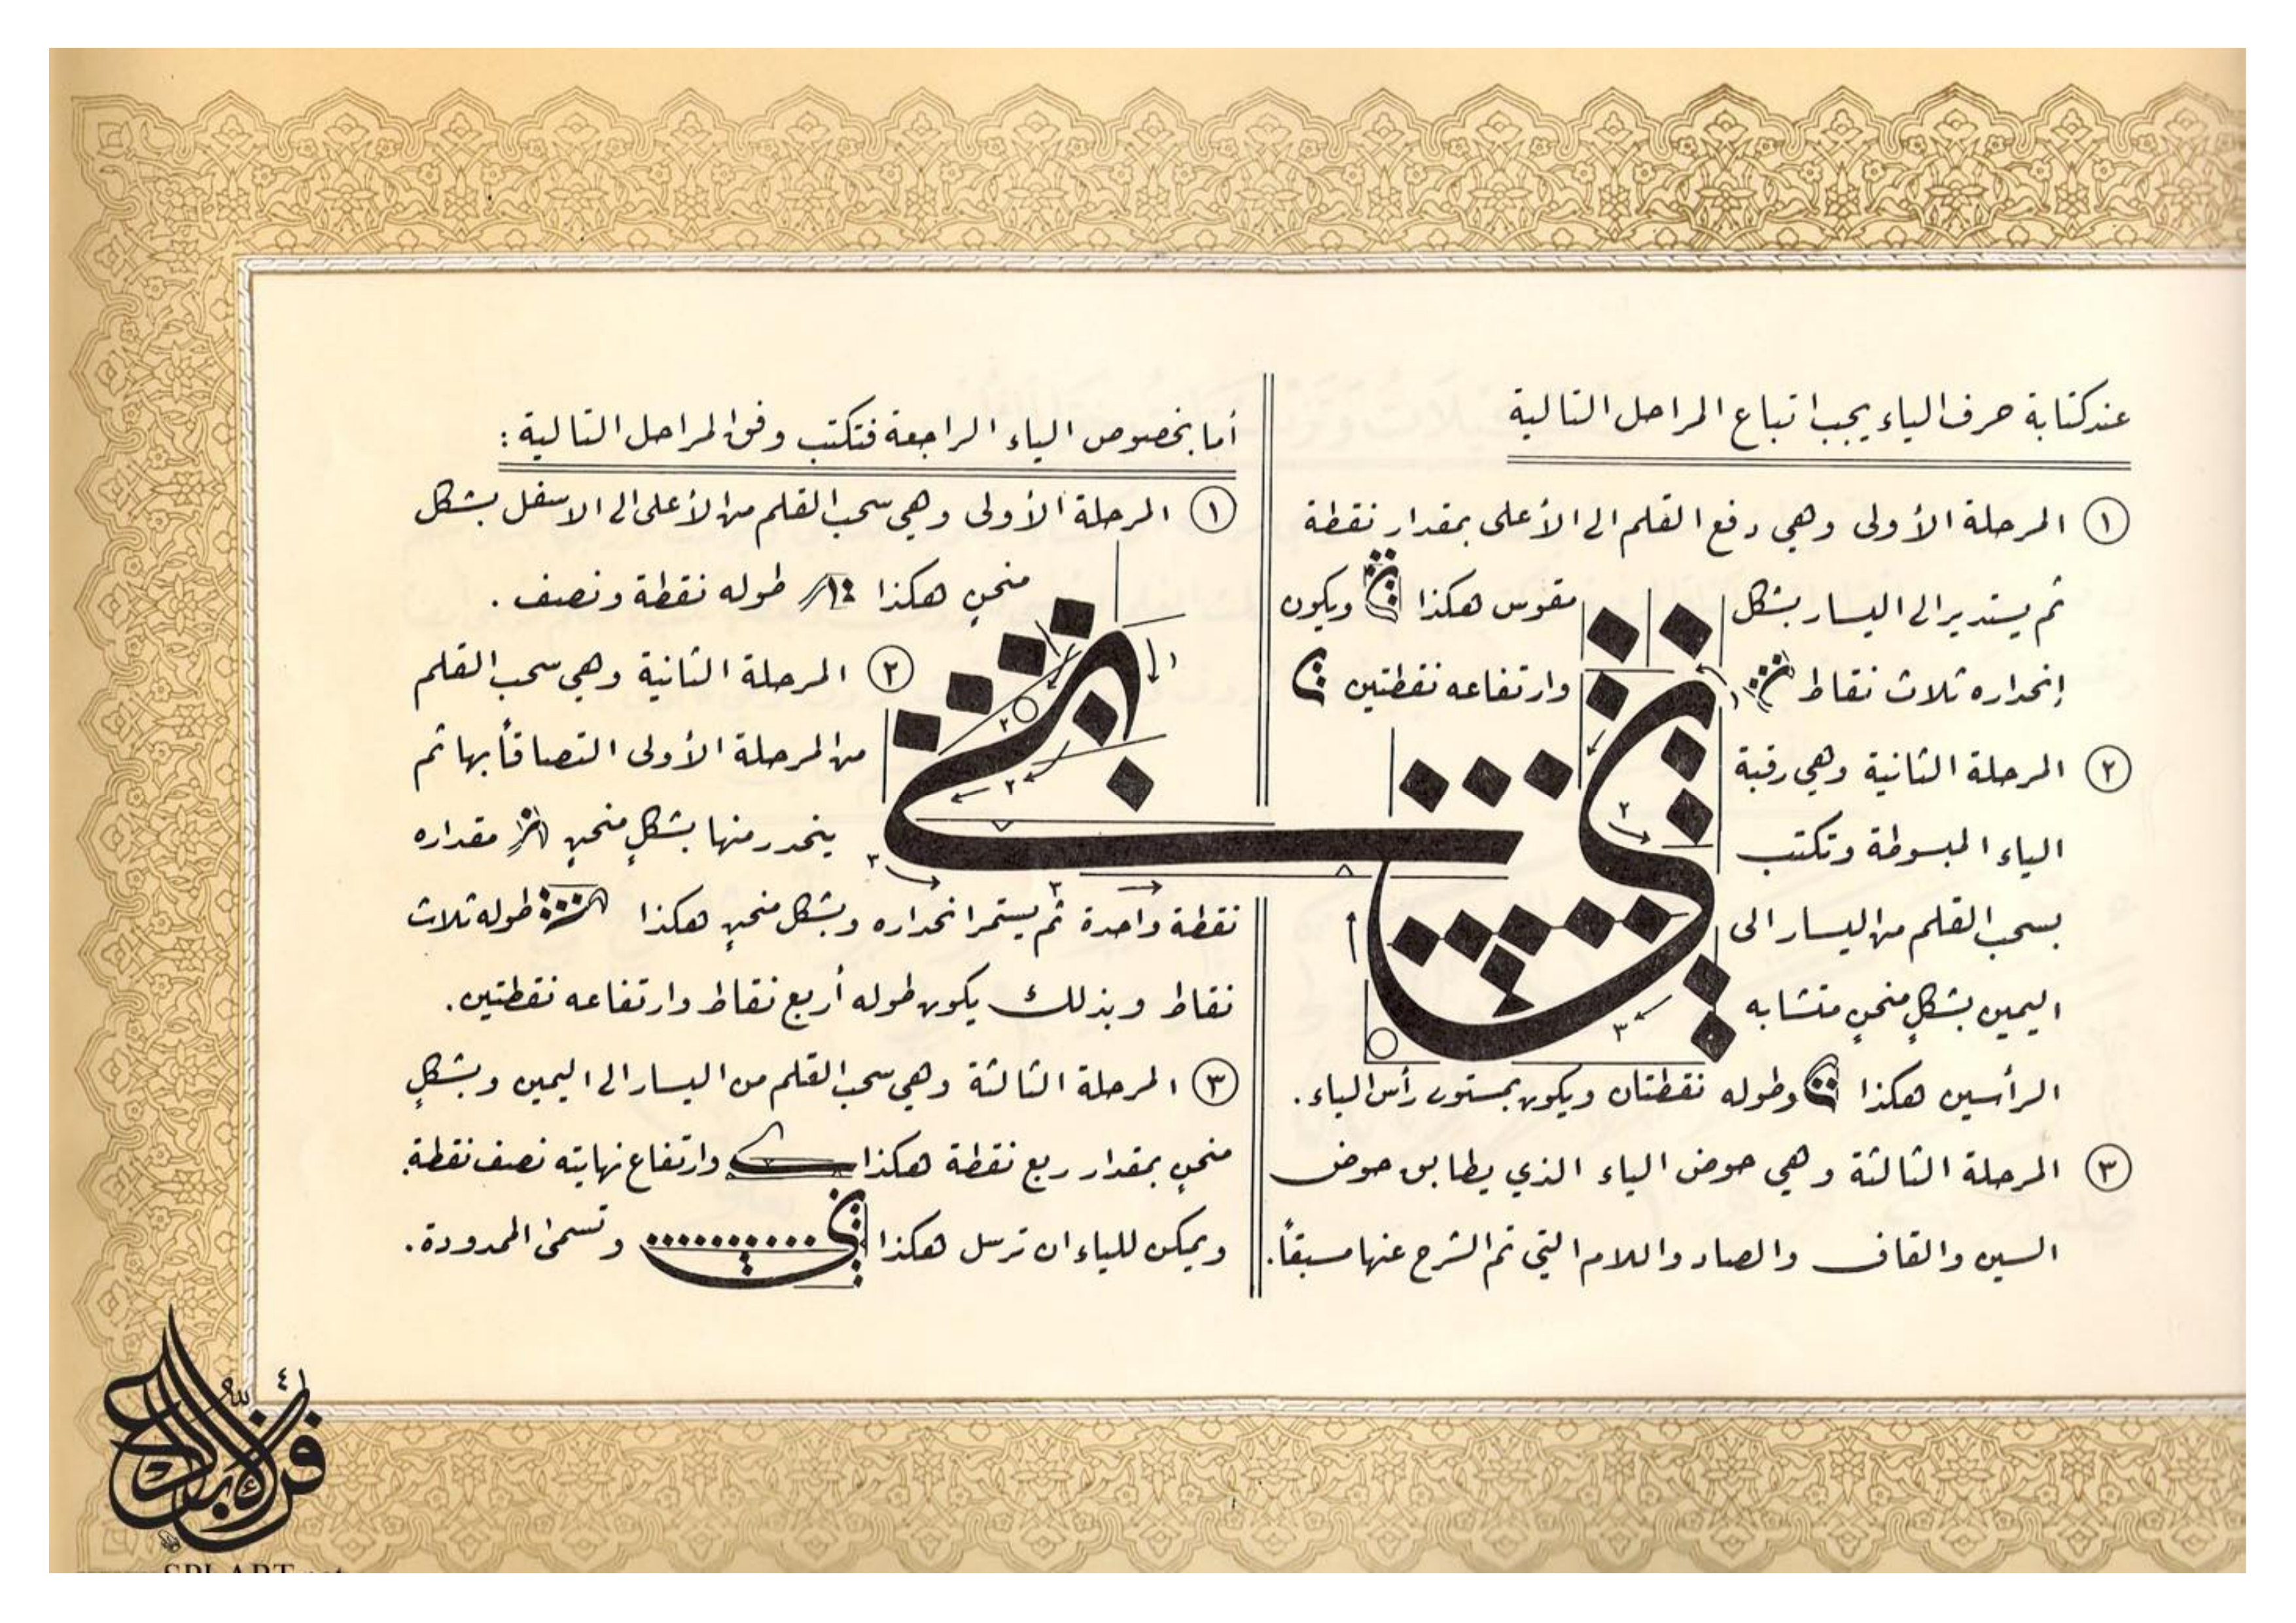 عند كتابة حرف الياء يجب اتباع المراحل التالية
١ المرحلة الأولى وهي دفع القلم الى الأعلى بمقدار نقطة
ثم يستدير الى اليسار بشكل مقوس هكذا ويكون
إنحداره ثلاث نقاط وارتفاعه نقطتين
٢ المرحلة الثانية وهي رقبة
الياء المبسوطة وتكتب
بسحب القلم من اليسار الى
اليمين بشكلٍ منحنٍ متشابه
الرأسين هكذا وطوله نقطتان ويكون بمستوى رأس الياء.
٣ المرحلة الثالثة وهي حوض الياء الذي يطابق حوض
السين والقاف والصاد واللام التي تم الشرح عنها مسبقاً.
أما بخصوص الياء الراجعة فتكتب وفق المراحل التالية:
١ المرحلة الأولى وهي سحب القلم من الأعلى الى الاسفل بشكل
منحنٍ هكذا طوله نقطة ونصف.
٢ المرحلة الثانية وهي سحب القلم
من المرحلة الأولى التصاقاً بها ثم
ينحدر منها بشكلٍ منحنٍ مقداره
نقطة واحدة ثم يستمر انحداره وبشكل منحنٍ هكذا طوله ثلاث
نقاط وبذلك يكون طوله أربع نقاط وارتفاعه نقطتين.
٣ المرحلة الثالثة وهي سحب القلم من اليسار الى اليمين وبشكلٍ
منحنٍ بمقدار ربع نقطة هكذا وارتفاع نهايته نصف نقطة.
ويمكن للياء ان ترسل هكذا وتسمى الممدودة.